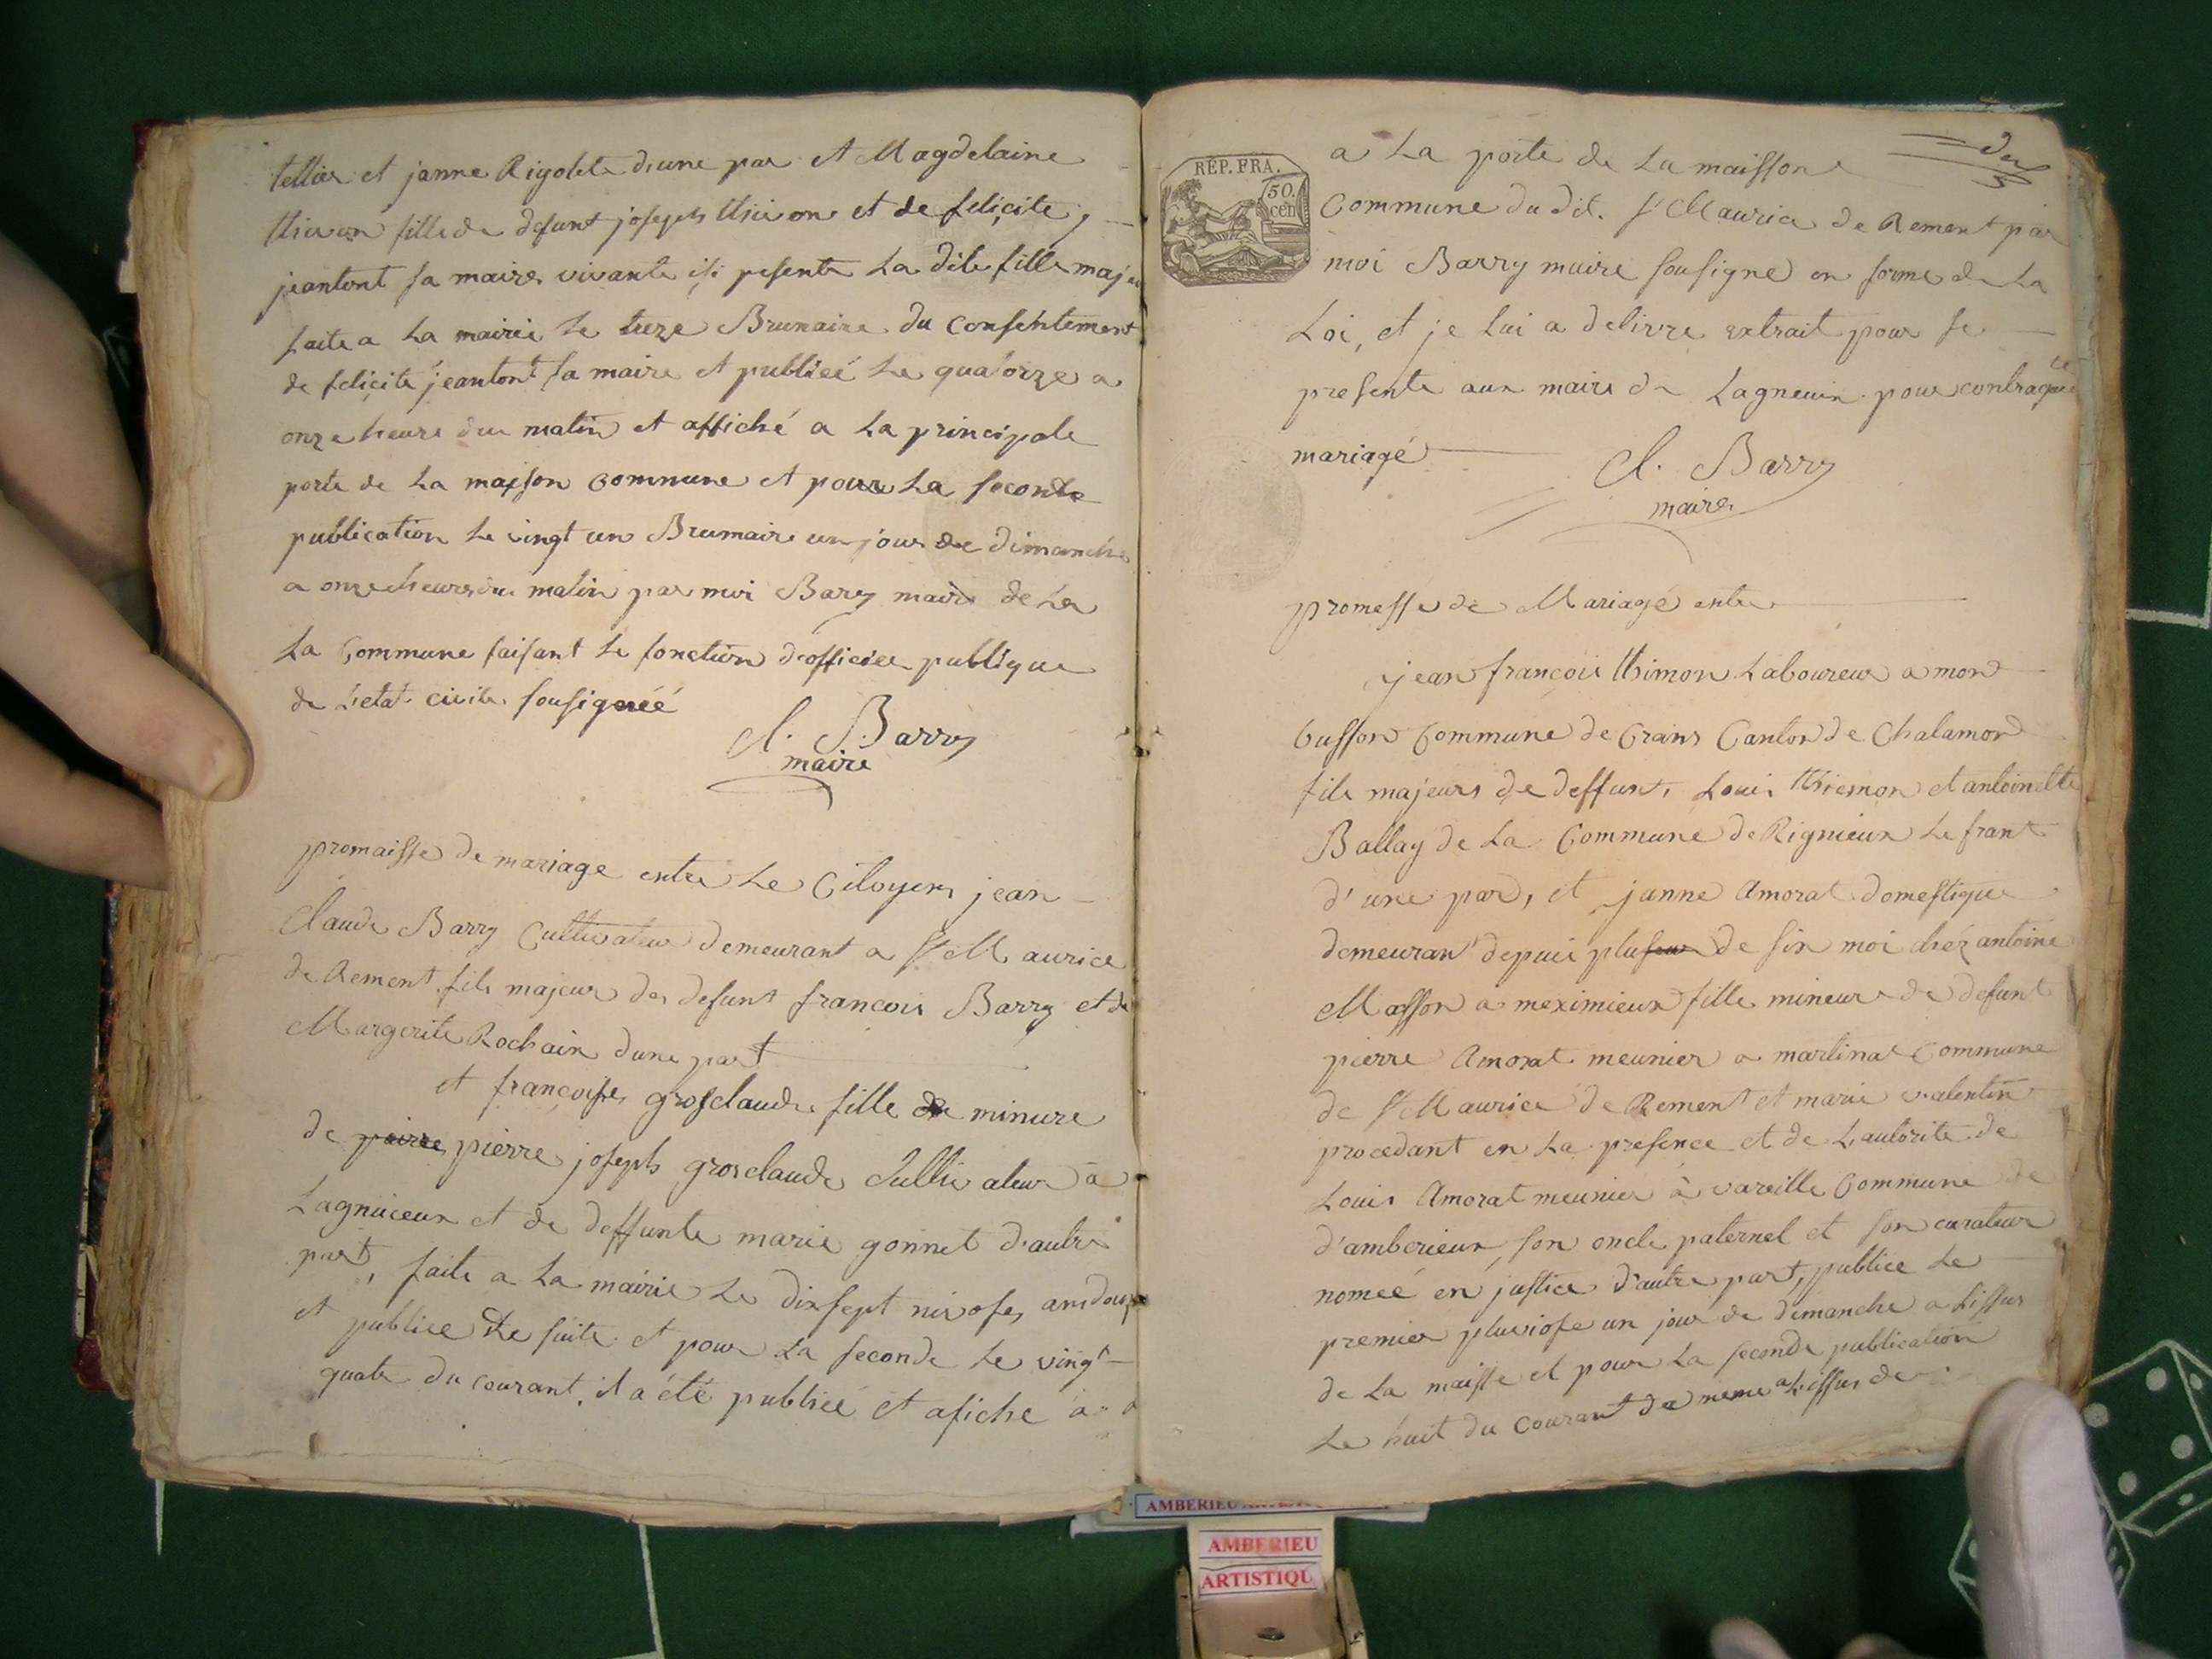 tellier et janne Rigolete d'une par et Magdelaine
fille de defunt joseph et de feliçite
jeantont sa maire vivante isi pesente La dite fille maj
faite a La mairie Le treze Brumaire du Consentement
de feliçité jeantont sa maire et publiéé Le quatorze a
onze heure du matin et affiché a La principale
porte de La maison Commune et pour La seconde
publication Le vingt un Brumaire un jour de dimanche
a onze heure du matin par moi Bary maire de La
La Commune faisant Le fonction d'officier publique
de L'etat civile sousignéé
Cl. Barry
maire
promaisse de mariage entre Le Citoyen jean
Claude Barry Cultivateur demeurant a St Maurice
de Rement fils majeur de defunt francois Barry et de
Margerite Rochain d'une part
et françoise grosclaude fille de minure
de poirre pierre joseph grosclaude Cultivateur à
Lagnuieux et de deffunte marie gonnet d'autre
part, faite a La mairie Le dixsept nivose, an douze
et publiee de suite et pour La seconde Le vingt
quate du courant. il a été publiéé et afiché à
a La porte de La maisson
REP. FRA.
50.
cen
Commune du dit. St Maurice de Rement par
moi Barry maire sousigné en forme de La
Loi, et je Lui a delivre extrait pour se
presente aux maire de Lagneuin pour contraque
mariagé
Cl. Barry
maire
promesse de Mariagé entre
jean françois thimon Laboureur a mon
busson Commune de Crans Canton de Chalamon
fils majeurs de deffunt, Louis thiemon et antoinette
Ballay de La Commune de Rignieux Le frant
d'une par, et janne Amorat domestique
demeuran depuis pluseur de six moi chéz antoine
Masson a meximieux fille mineure de defunt
pierre Amorat meunier a martinat Commune
de St Maurice de Rement et marie valentin
procedant en La presence et de L'autorite de
Louis Amorat meunier à vareille Commune de
d'amberieux, son oncle paternel et son curateur
noméé en justice d'autre part, publiée Le
premier pluviose un jour de dimanche a Lissus
de La maisse et pour La seconde publication
Le huit du courant de meme a Lissus de
AMBERIEU
ARTISTIQU